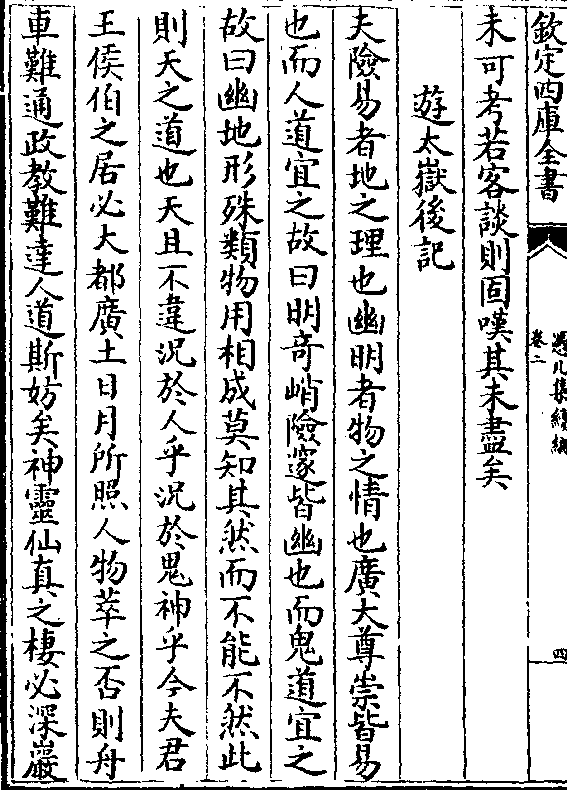 欽定四庫全書
憑几集續編
卷二
四
未可考若客談則固嘆其未盡矣
遊太嶽後記
夫險易者地之理也幽明者物之情也廣大尊崇皆易
也而人道宜之故曰明奇峭險邃皆幽也而鬼道宜之
故曰幽地形殊類物用相成莫知其然而不能不然此
則天之道也天且不違況於人乎況於鬼神乎今夫君
王侯伯之居必大都廣土日月所照人物萃之否則舟
車難通政教難達人道斯妨矣神靈仙真之棲必深巖